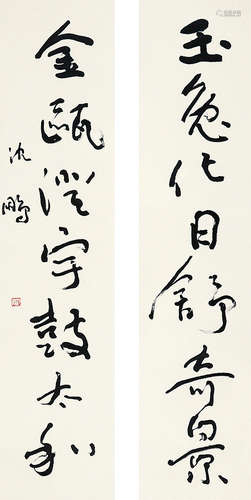 玉兔化日舒奇景
金瓯澄宇鼓太和
沈鹏